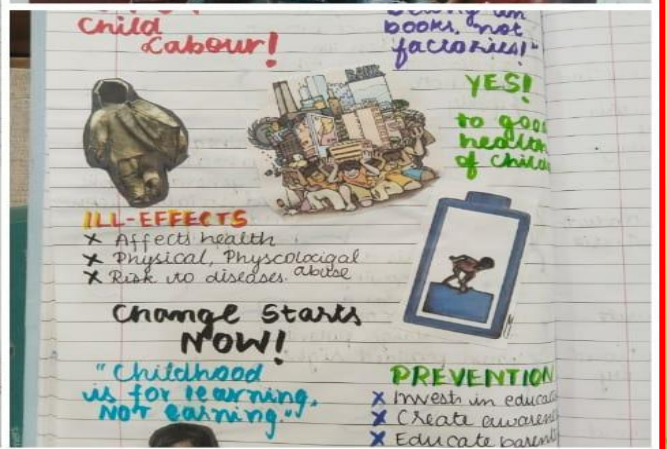 Child
Labour!
books, not
factories!"
YES!
to good
health
of child
ILL-EFFECTS
x Affects health
x Physical, Physcolocigal
abuse
x Risk to diseases.
Change Starts
NOW!
"Childhood
is for learning,
NOT earning."
PREVENTION
x Invest in educa
x Create awaren
x Educate parent